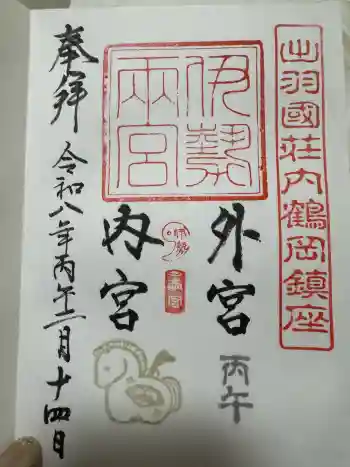 出羽國荘内鶴岡鎮座
伊勢
兩宮
外宮
丙午
伊勢
内宮
奉拝
令和八年丙午二月十四日